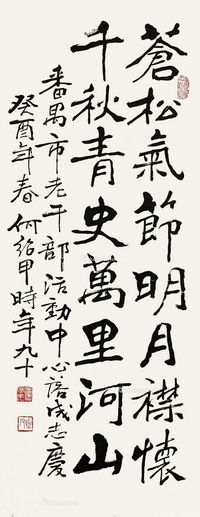 蒼松氣節明月襟懷
千秋青史萬里河山
番禺市老干部活動中心落成志慶
癸酉年春何紹甲時年九十